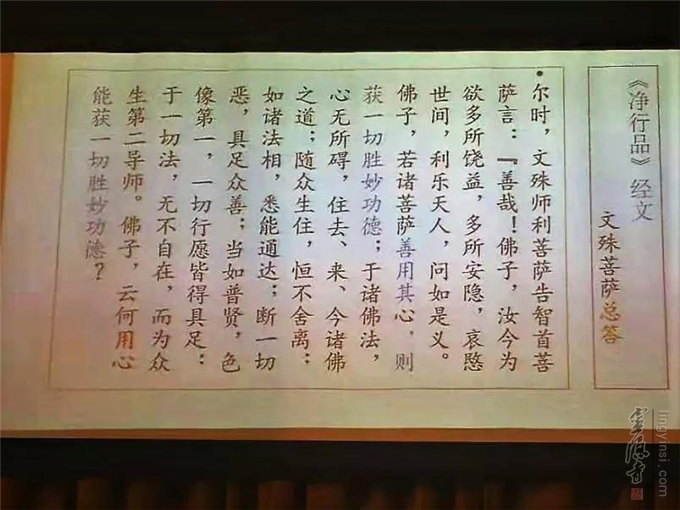 《净行品》经文
文殊菩萨总答
•尔时，文殊师利菩萨告智首菩
萨言：『善哉！佛子，汝今为
欲多所饶益，多所安隐，哀愍
世间，利乐天人，问如是义。
佛子，若诸菩萨善用其心，则
获一切胜妙功德；于诸佛法，
心无所碍，住去、来、今诸佛
之道；随众生住，恒不舍离；
如诸法相，悉能通达；断一切
恶，具足众善；当如普贤，色
像第一，一切行愿皆得具足；
于一切法，无不自在，而为众
生第二导师。佛子，云何用心
能获一切胜妙功德？
灵隐寺
lingyinsi.com